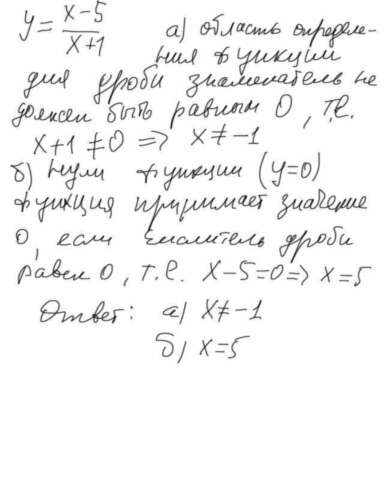 y = x-5/x+1 а) область определе-
ния функции
для дроби знаменатель не
должен быть равным 0, т.е.
x+1 ≠ 0 => x ≠ -1
б) нули функции (y=0)
функция принимает значение
0, если числитель дроби
равен 0, т.е. x-5=0 => x=5
Ответ: а) x ≠ -1
б) x=5